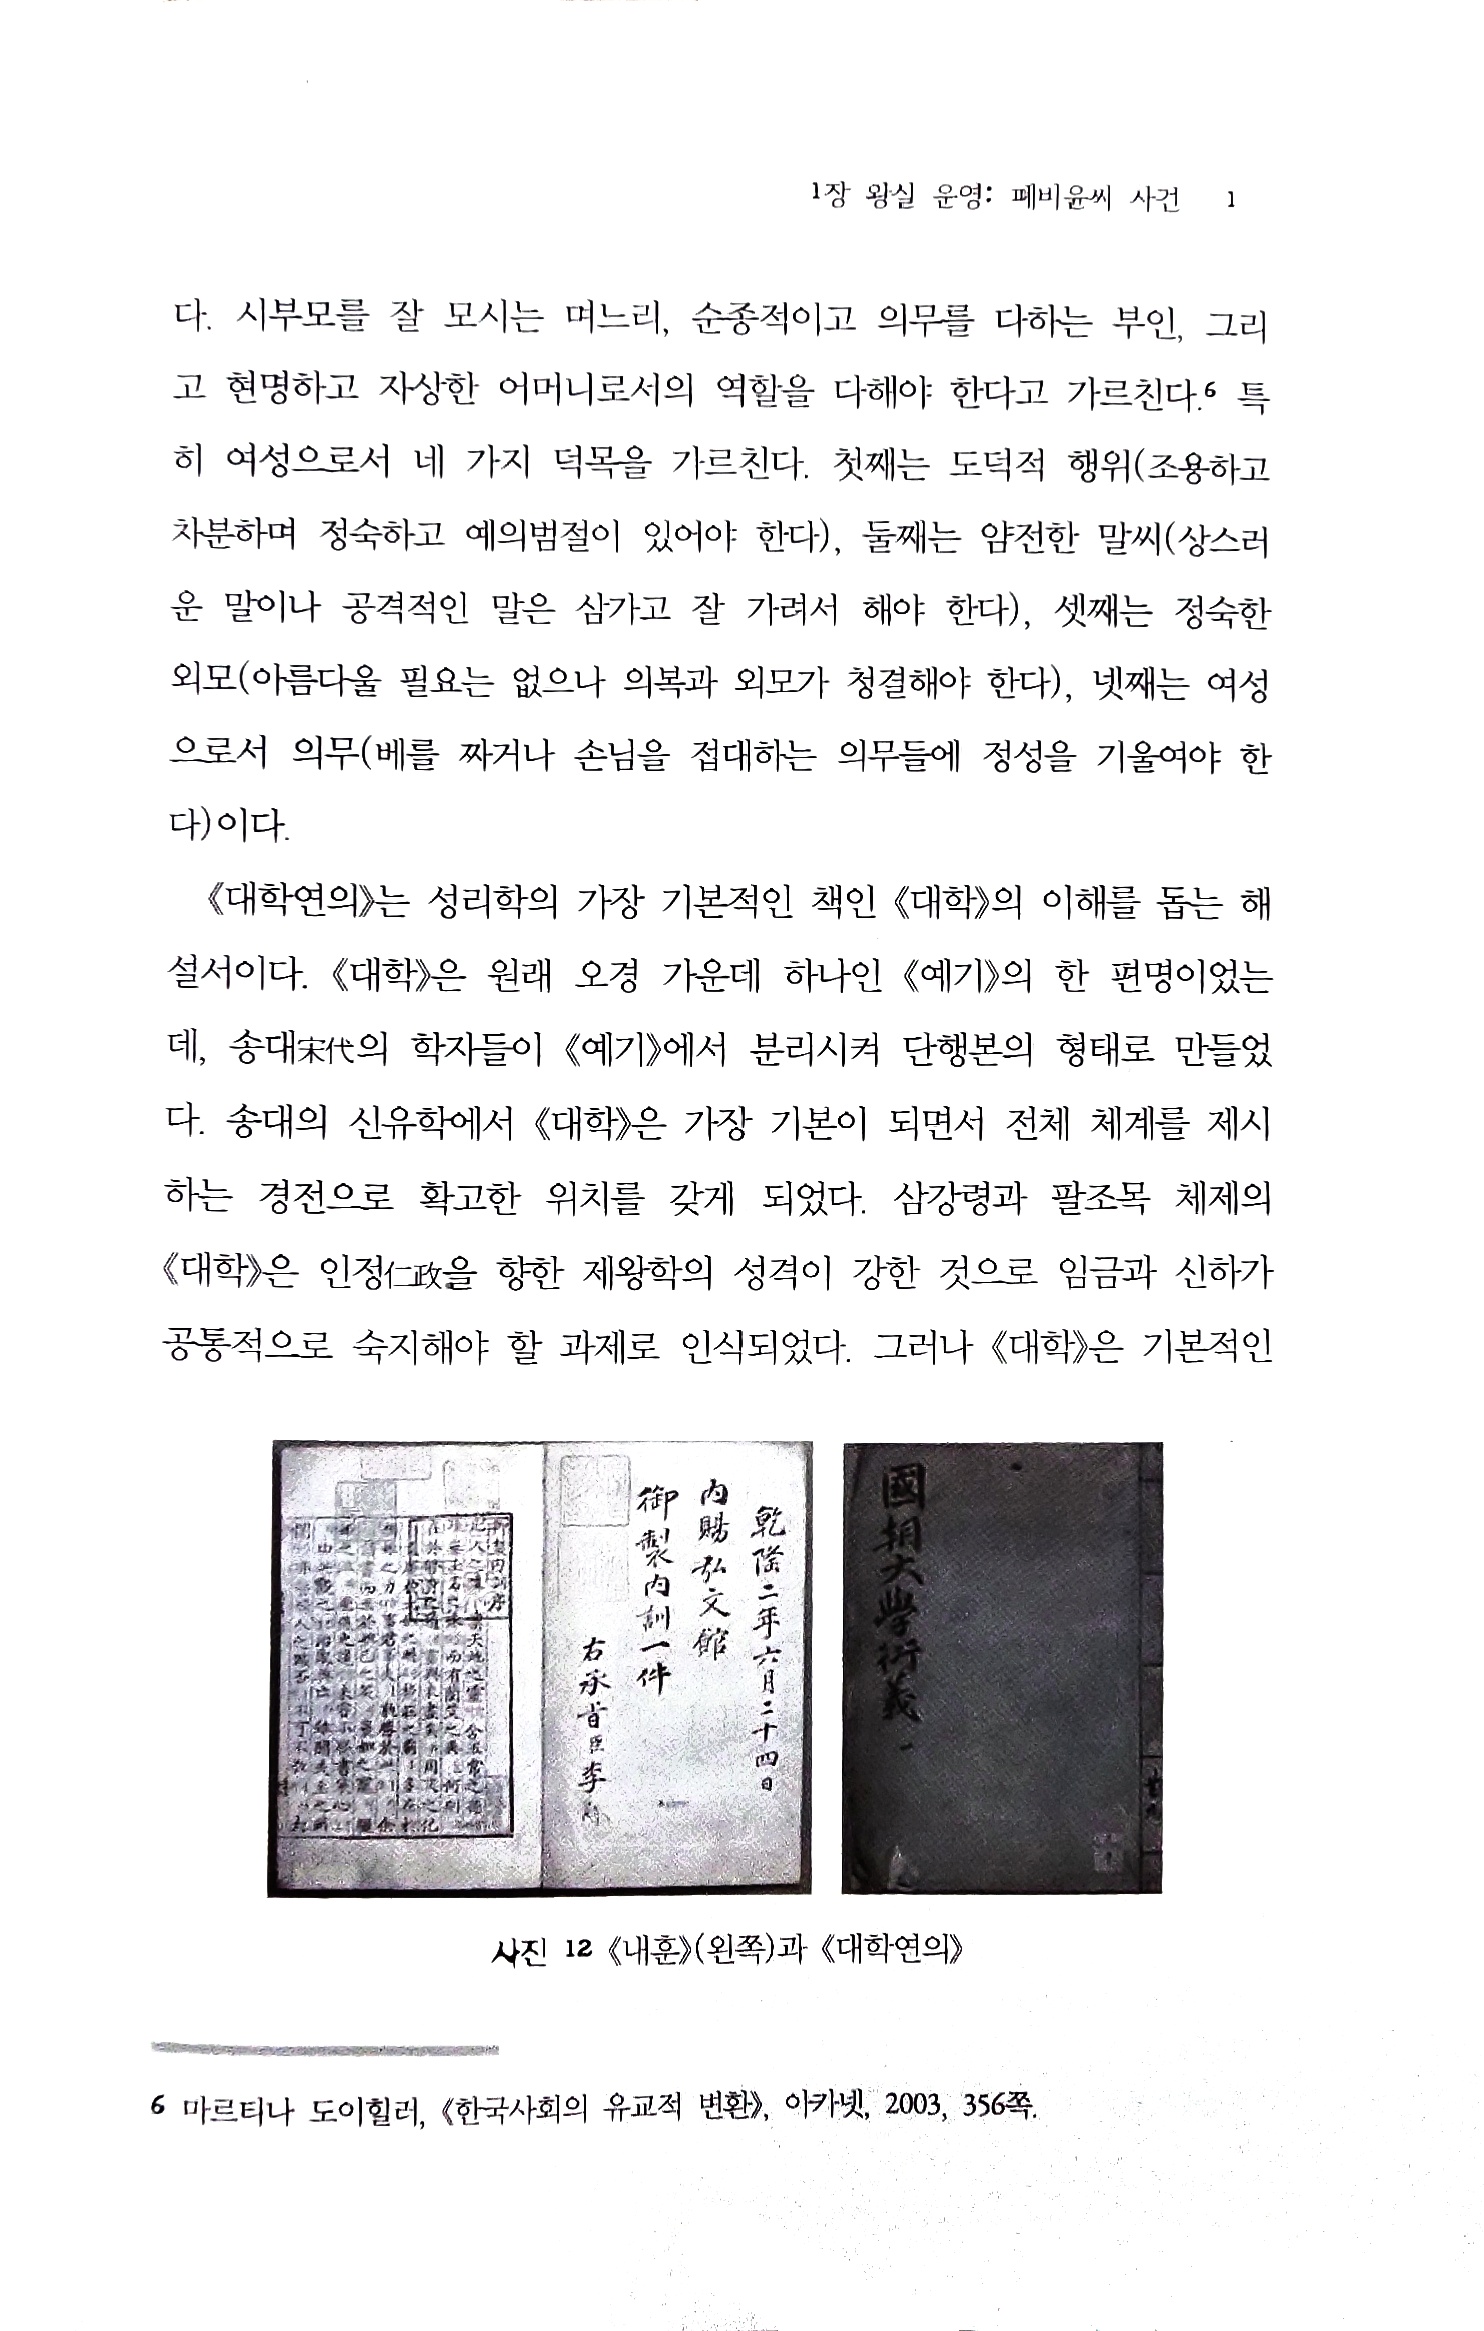 1장 왕실 운영: 폐비윤씨 사건 1
다. 시부모를 잘 모시는 며느리, 순종적이고 의무를 다하는 부인, 그리
고 현명하고 자상한 어머니로서의 역할을 다해야 한다고 가르친다.6 특
히 여성으로서 네 가지 덕목을 가르친다. 첫째는 도덕적 행위(조용하고
차분하며 정숙하고 예의범절이 있어야 한다), 둘째는 얌전한 말씨(상스러
운 말이나 공격적인 말은 삼가고 잘 가려서 해야 한다), 셋째는 정숙한
외모(아름다울 필요는 없으나 의복과 외모가 청결해야 한다), 넷째는 여성
으로서 의무(베를 짜거나 손님을 접대하는 의무들에 정성을 기울여야 한
다)이다.
《대학연의》는 성리학의 가장 기본적인 책인 《대학》의 이해를 돕는 해
설서이다. 《대학》은 원래 오경 가운데 하나인 《예기》의 한 편명이었는
데, 송대宋代의 학자들이 《예기》에서 분리시켜 단행본의 형태로 만들었
다. 송대의 신유학에서 《대학》은 가장 기본이 되면서 전체 체계를 제시
하는 경전으로 확고한 위치를 갖게 되었다. 삼강령과 팔조목 체제의
《대학》은 인정仁政을 향한 제왕학의 성격이 강한 것으로 임금과 신하가
공통적으로 숙지해야 할 과제로 인식되었다. 그러나 《대학》은 기본적인
乾隆二年六月二十四日
內賜弘文館
御製內訓一件
右承旨臣李
國朝大學衍義 一
사진 12 《내훈》(왼쪽)과 《대학연의》
6 마르티나 도이힐러, 《한국사회의 유교적 변환》, 아카넷, 2003, 356쪽.